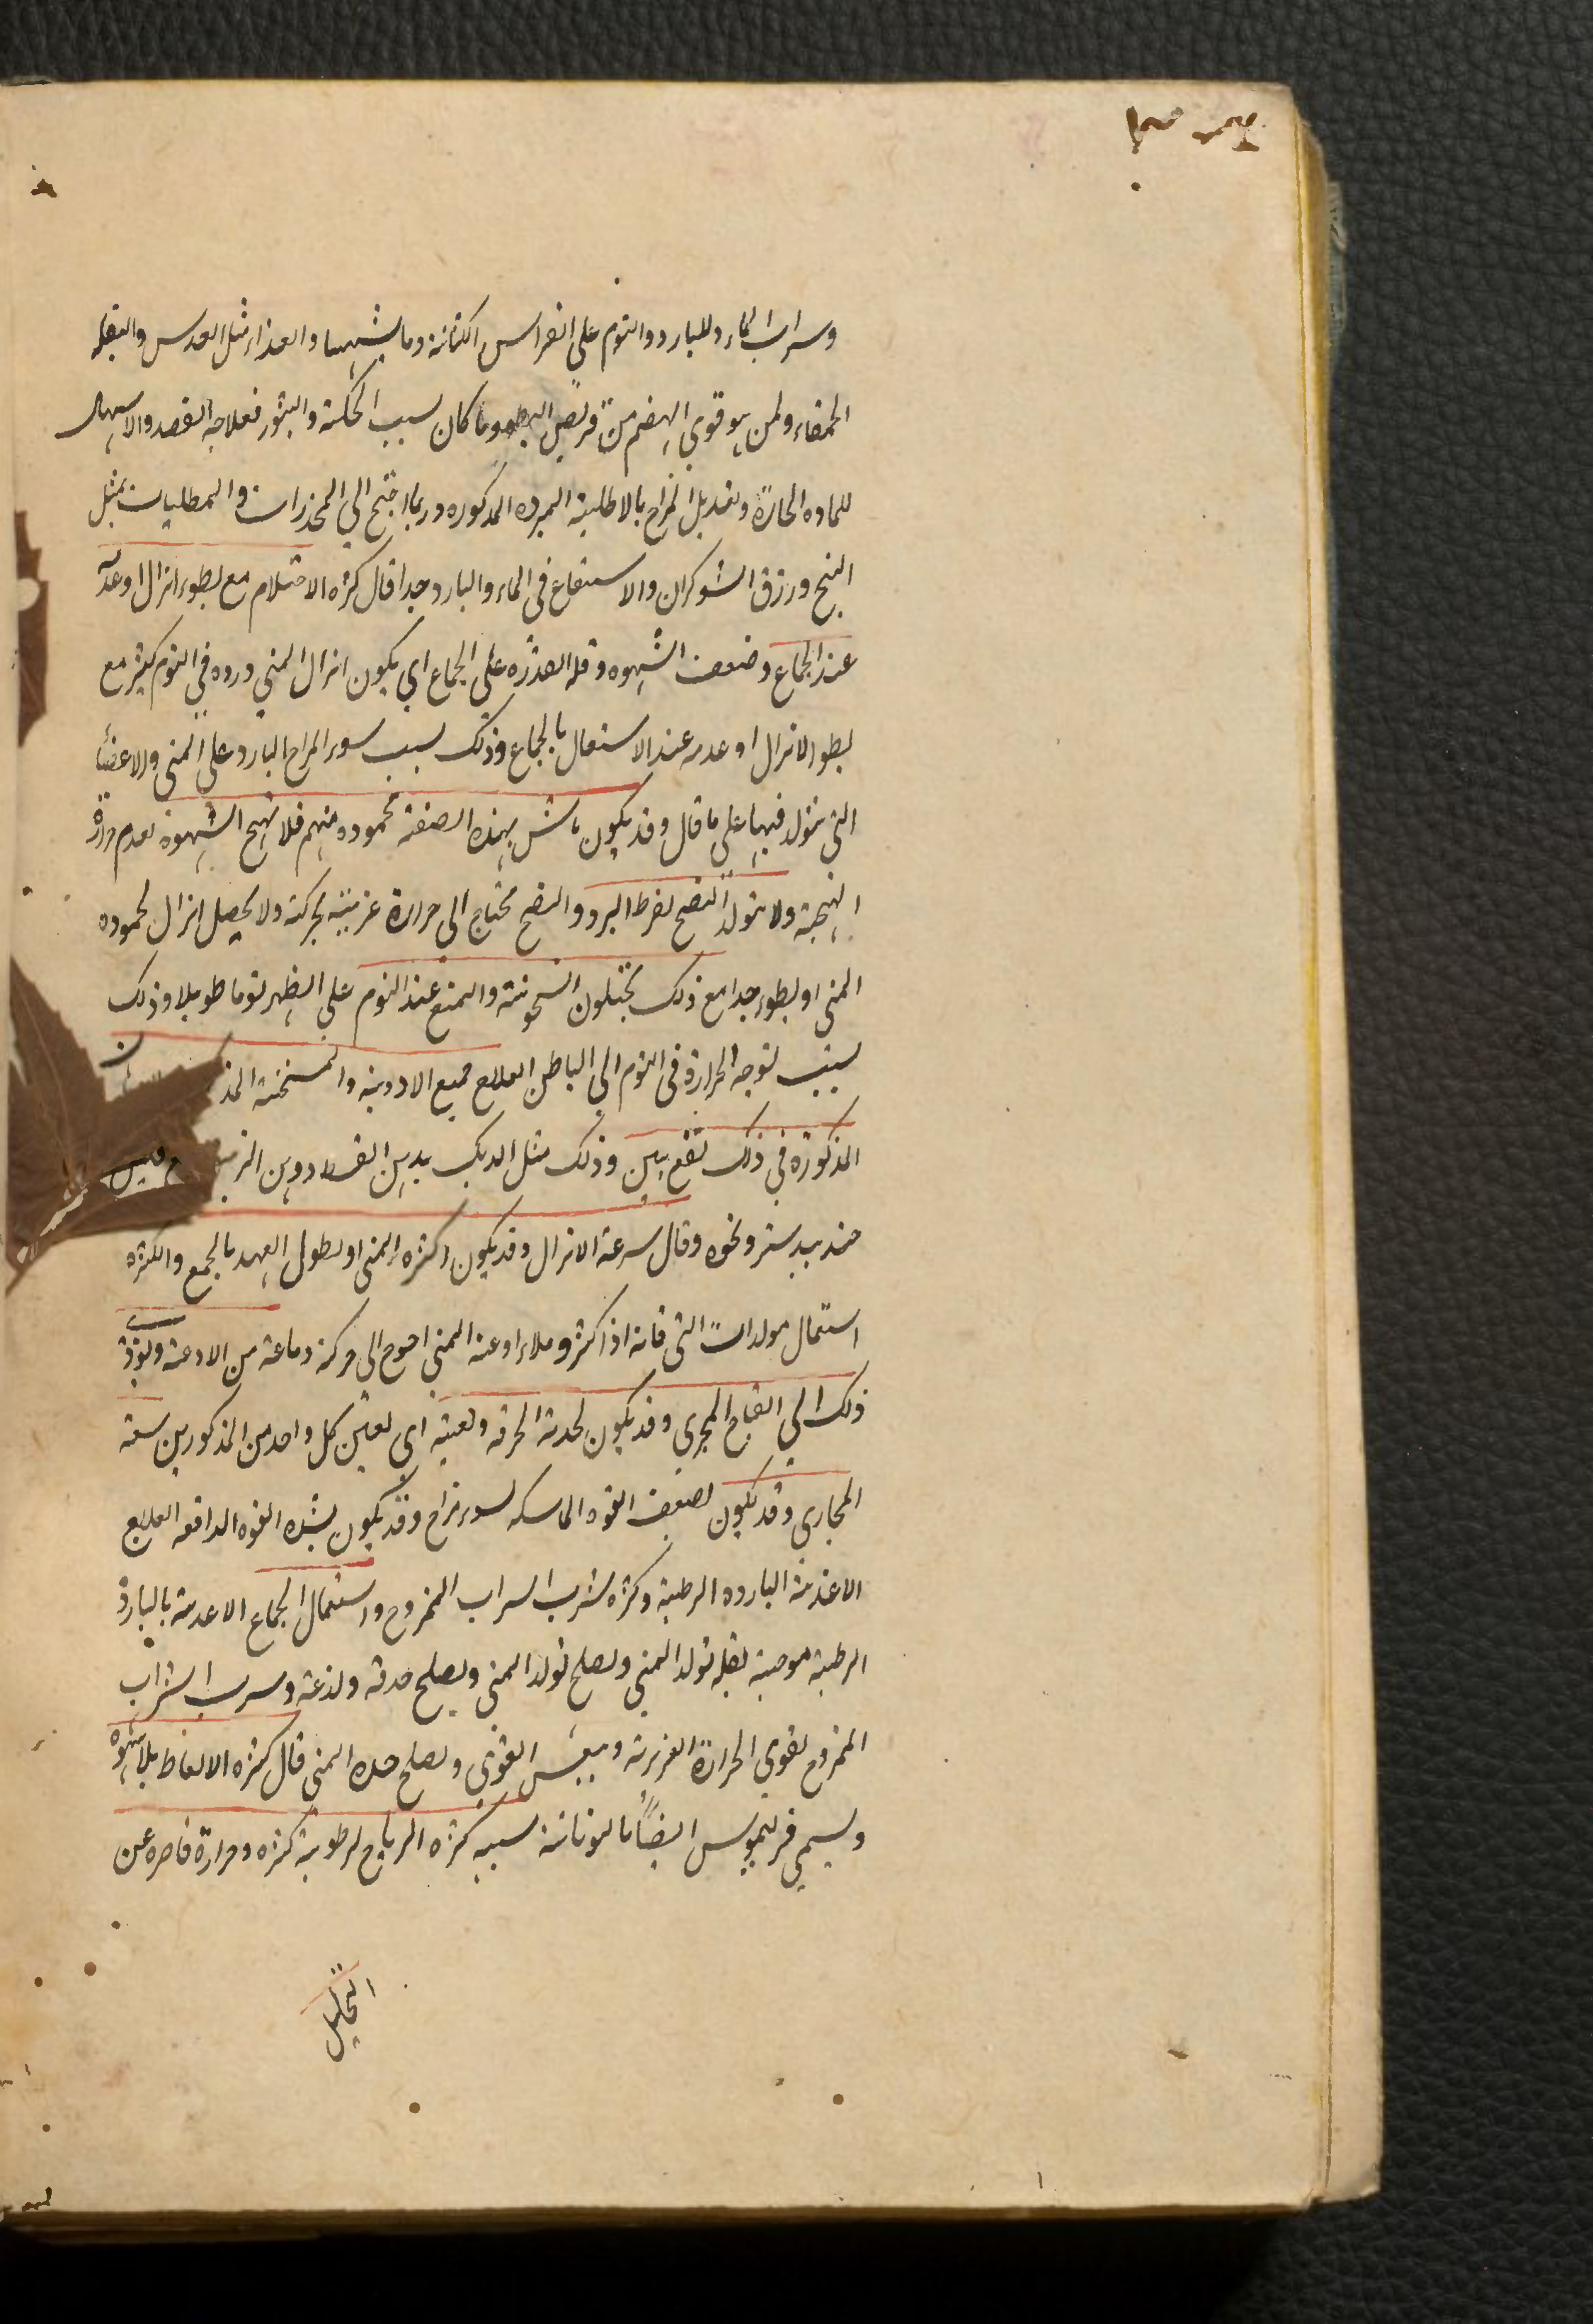 وسراب الماء والبارد والنوم على الفراس الكتانة وما يشبهها والغذاء مثل العدس والبقله
الحمقاء ولمن هو قوي الهضم من قريص البطون وما كان لسبب الحكة والبثور فعلاجه الفصد والاسهال
للماده الحارة وتعديل المزاج بالاطلية المبرده المذكوره وربما احتيج الي المخدرات والمطليات بمثل
البنج وورق الشوكران والاستنقاع في الماء والبارد جدا قال كثره الاحتلام مع بطوء انزال او عدمه
عند الجماع وضعف الشهوه وقله القدره على الجماع اي يكون انزال المني وروده في النوم كثير مع
بطو الانزال او عدمه عند الاستعمال بالجماع وذلك لسبب سوء المزاج البارد على المني والاعضا
التي يتولد فيها على ما قال وقد يكون ناس بهذه الصفة محموده منهم فلا تهيج الشهوة لعدم حرارة
المهيجة ولا يتولد النضج لفرط البرد والنضج محتاج الى حرارة غريبة محركة ولا يحصل انزال لجموده
المني او بطوء جدا مع ذلك يحتلون السخونة والمنع عند النوم على الظهر نوما طويلا وذلك
لسبب توجه الحرارة في النوم الي الباطن العلاج جميع الادوية والمسخنة
المذكورة في ذلك نفع بين وذلك مثل الدلك بدهن القسط ودهن
جندبيدستر ونحوه وقال سرعة الانزال وقد يكون لكثره المني او لطول العهد بالجمع والكثره
استعمال مولدات التي فانه اذا كثر وملاء اوعية المني احوج الى حركة دماعة من الاوعية ويؤذي
ذلك الي انفتاح المجري وقد يكون لحدته الحرقه ولعينه اي لعين كل واحد من المذكورين سعة
المجاري وقد يكون لضعف القوه الماسكه لسوء مزاج وقد يكون لشده القوه الدافعه العلاج
الاغذية البارده الرطبة وكثره شرب السراب الممزوج واستعمال الجماع الاغدية بالبارد
الرطبة موجبة لقله تولد المني ويصلح تولد المني ويصلح حدته ولذعه وسرب الشراب
الممزوج لقوي الحرارة الغريزية وينعش القوي ويصلح حده المني قال كثره الانعاظ بلا شهوه
ويسمي فريسموس ايضاً باليونانية سببه كثره الرياح لرطوبة كثره وحرارة قاصره عن
التحليل